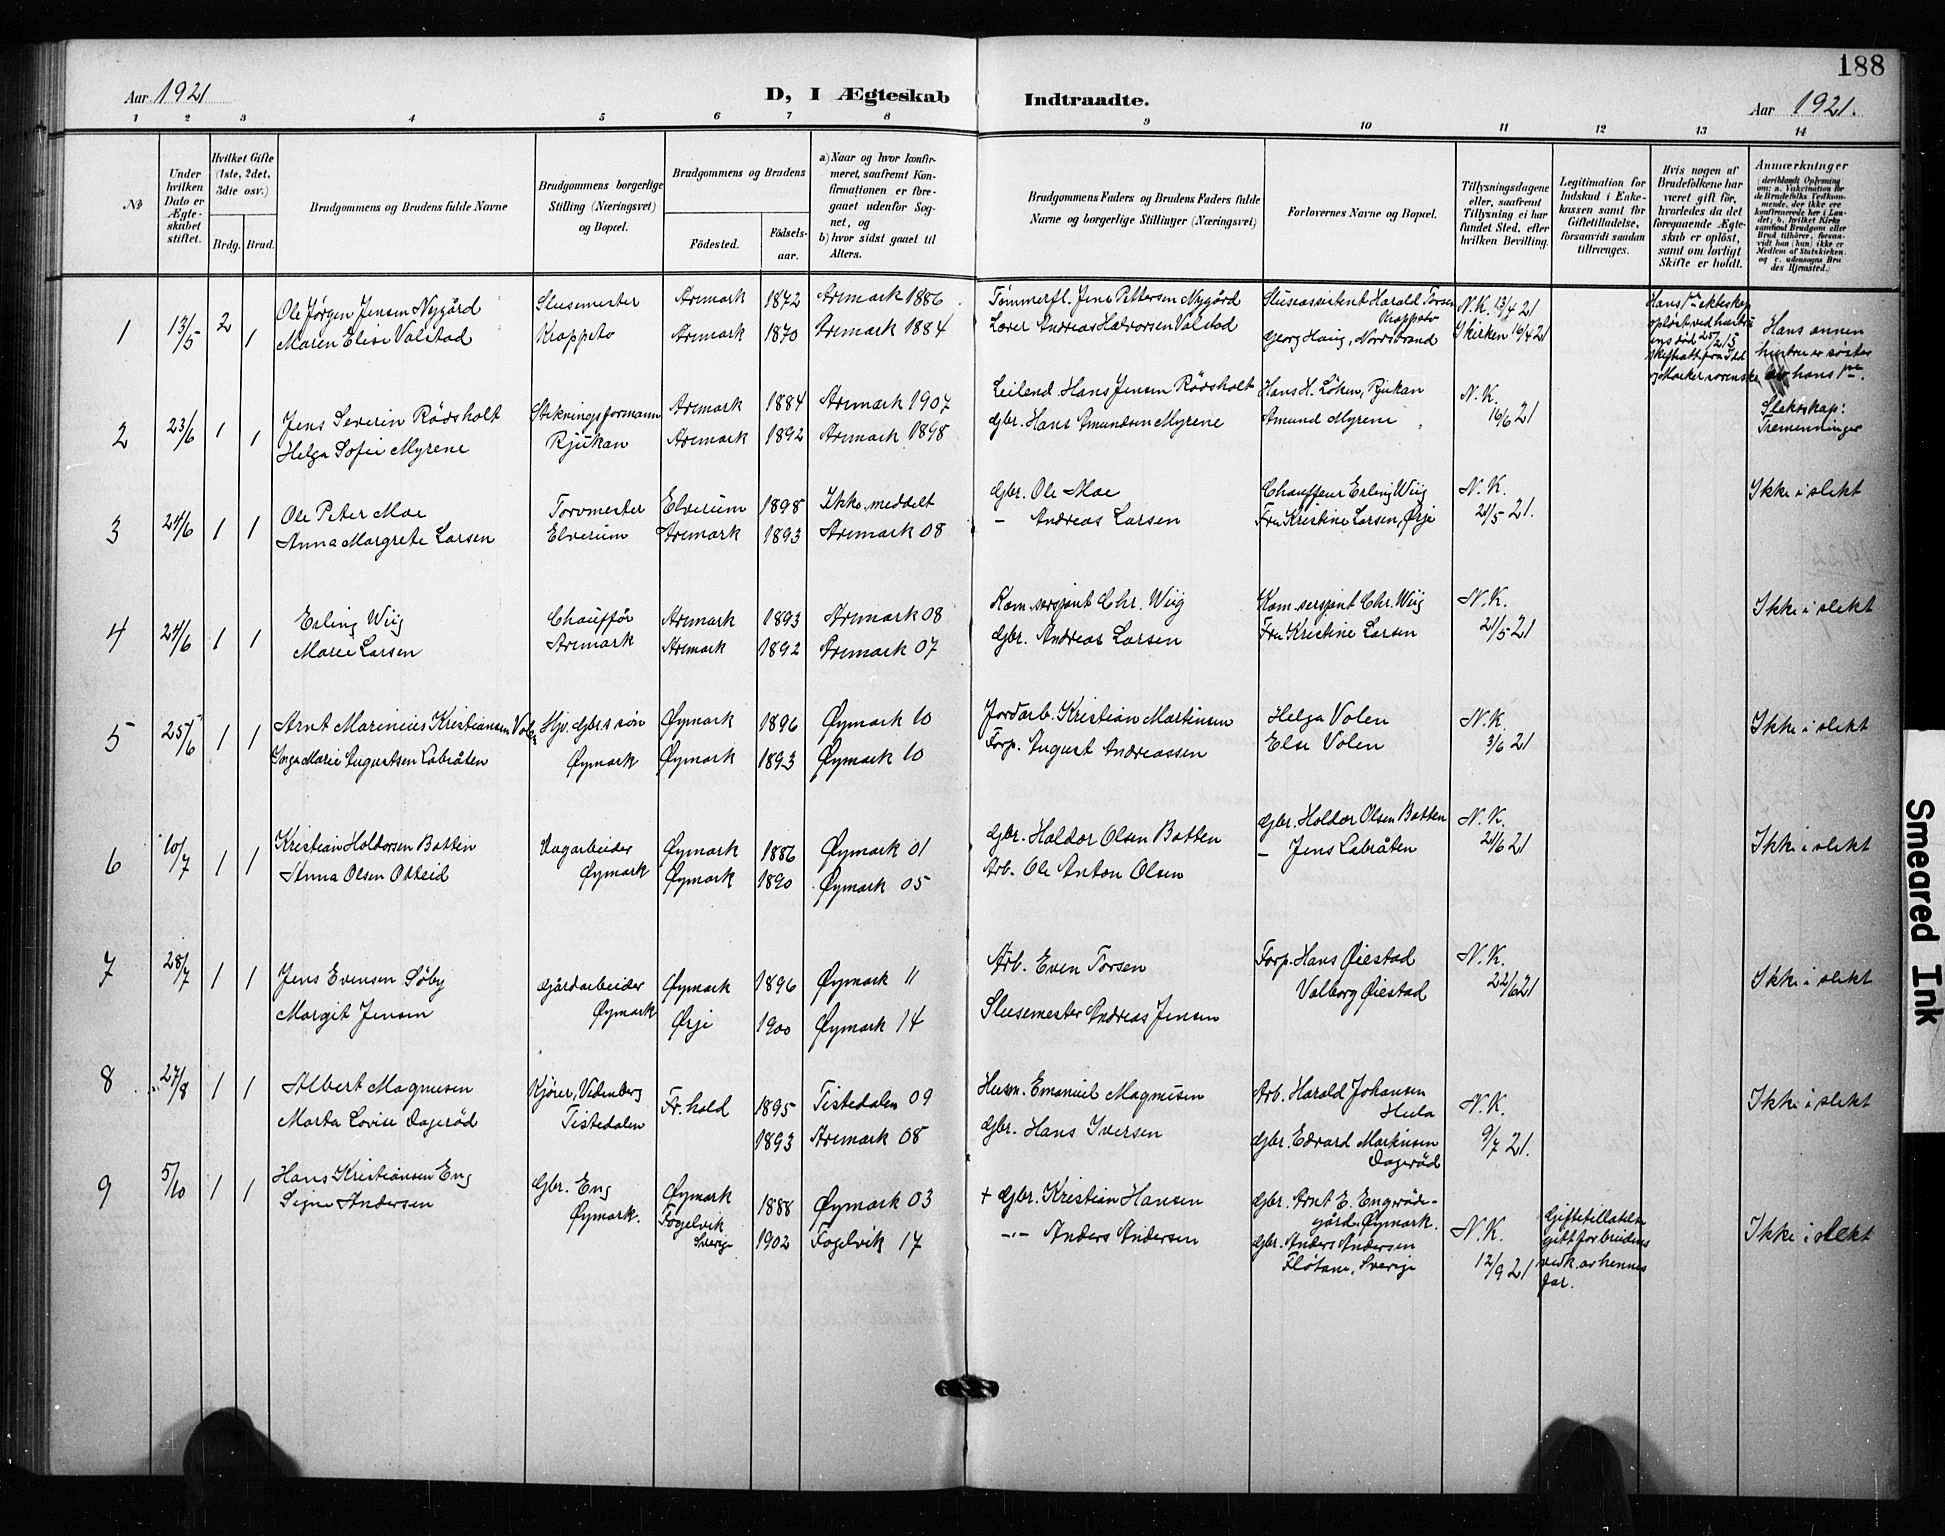 188
Aar 1921
D, I Ægteskab Indtraadte.
Aar 1921.
1 2 3 4 5 6 7 8 9 10 11 12 13 14
No
Under hvilken Dato er Ægteskabet stiftet.
Hvilket Gifte (1ste, 2det, 3die osv.)
Brdg. Brud.
Brudgommens og Brudens fulde Navne
Brudgommens borgerlige Stilling (Næringsvei) og Bopæl.
Brudgommens og Brudens
Fødested.
Fødsels-aar.
a) Naar og hvor konfirmeret, saafremt Konfirmationen er foregaaet udenfor Sognet, og
b) hvor sidst gaaet til Alters.
Brudgommens Faders og Brudens Faders fulde Navne og borgerlige Stillinger (Næringsvei)
Forlovernes Navne og Bopæl.
Tillysningsdagene eller, saafremt Tillysning ei har fundet Sted, efter hvilken Bevilling.
Legitimation for Indskud i Enkekassen samt for Giftetilladelse, forsaavidt saadan tiltrænges.
Hvis nogen af Brudefolkene har været gift før, hvorledes da det foregaaende Ægteskab er opløst, samt om lovligt Skifte er holdt.
Anmærkninger (deriblandt Oplysning om: a. Vakcination for de Brudefolks Vedkommende, der ikke ere konfirmerede her i Landet; b. hvilket Kirkesamfund Brudgom eller Brud tilhører, forsaavidt han (hun) ikke er Medlem af Statskirken, og c. udensogns Brudes Hjemsted.)
1 13/5 2 1
Ole Jørgen Jensen Nygård Slusemester Aremark 1872 Aremark 1886 Tømmerfl. Jens Pettersen Nygård Sluseassistent Harald Torsen Kroppsto N.K. 13/4 21
Maren Elise Valstad Kroppsto Aremark 1870 Aremark 1884 Lærer Andreas Halvorsen Valstad Georg Haug, Nordstrand I kirken 16/4 21
Hans 1ste ekteskap opløst ved hustruens død 25/2 15
Hans annen hustru er søster av hans 1ste.
2 23/6 1 1
Jens Severin Rødsholt Stikningsformann Aremark 1884 Aremark 1907 Leilend. Hans Jensen Rødsholt Hans H. Løken, Rjukan N.K.
Helga Sofie Myrene Rjukan Aremark 1892 Aremark 1898 Gbr. Hans Amundsen Myrene Amund Myrene 16/6 21
Slektskap: Tremenninger
3 24/6 1 1
Ole Peter Moe Torvmester Elverum 1898 Ikke meddelt Gbr. Ole Moe Chauffeur Erling Wiig N.K. Ikke i slekt
Anna Margrete Larsen Elverum Aremark 1893 Aremark 08 – Andreas Larsen Fru Kristine Larsen, Ørje 21/5 21.
4 24/6 1 1
Erling Wiig Chauffør Aremark 1893 Aremark 08 Kom. sersjant Chr. Wiig Kom. sersjant Chr. Wiig N.K. Ikke i slekt
Marie Larsen Aremark Aremark 1892 Aremark 07 Gbr. Andreas Larsen Fru Kristine Larsen 21/5 21
5 25/6 1 1
Arnt Marinius Kristiansen Volen Hjv. Gbr.s søn Øymark 1896 Øymark 10 Jordarb. Kristian Martinsen Helga Volen N.K. Ikke i slekt
Inga Marie Augustsen Labråten Øymark Øymark 1893 Øymark 10 Forp. August Andreassen Else Volen 3/6 21
6 10/7 1 1
Kristian Holdorsen Botten Dagarbeider Øymark 1886 Øymark 01 Gbr. Haldor Olsen Botten Gbr. Holdor Olsen Botten N.K. Ikke i slekt
Anna Olsen Otteid Øymark Øymark 1890 Øymark 05 Arb. Ole Anton Olsen – Jens Labråten 21/6 21
7 28/7 1 1
Jens Evensen Søby Gårdarbeider Øymark 1896 Øymark 11 Arb. Even Torsen Forp. Hans Øiestad N.K. Ikke i slekt
Margit Jensen Øymark Ørje 1900 Øymark 14 Slusemester Andreas Jensen Valborg Øiestad 22/6 21
8 27/8 1 1
Albert Magnusen Kjører, Vedenberg Fr.hald 1895 Tistedalen 09 Husm. Emanuel Magnusen Arb. Harald Johansen Hula N.K. Ikke i slekt
Marta Lovise Dagerød Tistedalen 1893 Aremark 08 Gbr. Hans Iversen Gbr. Edvard Markusen Dagerød 9/7 21.
9 5/10 1 1
Hans Kristiansen Eng Gbr. Eng Øymark 1888 Øymark 03 + Gbr. Kristian Hansen Gbr. Arnt E. Engerødegård, Øymark. N.K. Ikke i slekt
Signe Andersen Øymark. Fogelvik Sverige 1902 Fogelvik 17 –"– Anders Andersen Gbr. Anders Andersen Fløtane, Sverige 12/9 21
Giftetillatelse gitt for brudens vedk. av hennes far.
Smeared Ink